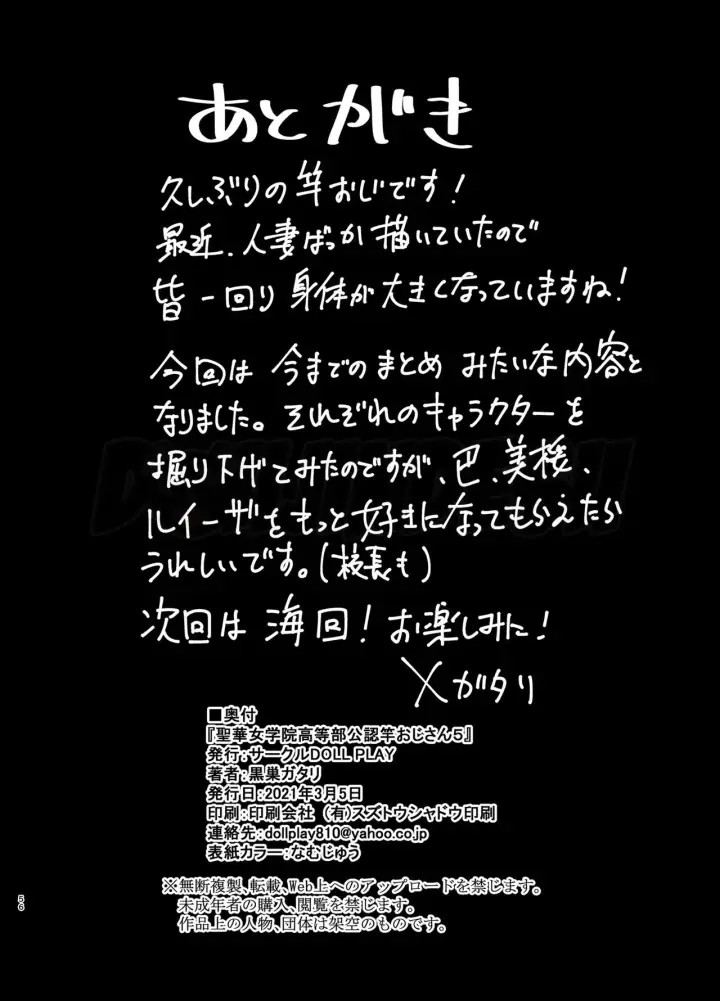 あとがき
久しぶりの竿おじです!
最近、人妻ばっか描いていたので
皆一回り身体が大きくなっていますね!
今回は今までのまとめみたいな内容と
なりました。それぞれのキャラクターを
掘り下げてみたのですが、巴、美稜、
ルイーザをもっと好きになってもらえたら
うれしいです。(校長も)
次回は海回!お楽しみに!
ガタリ
■奥付
『聖華女学院高等部公認竿おじさん5』
発行:サークルDOLL PLAY
著者:黒巣ガタリ
発行日:2021年3月5日
印刷:印刷会社 (有)スズトウシャドウ印刷
連絡先:dollplay810@yahoo.co.jp
表紙カラー:なむじゅう
※無断複製、転載、Web上へのアップロードを禁じます。
未成年者の購入、閲覧を禁じます。
作品上の人物、団体は架空のものです。
56